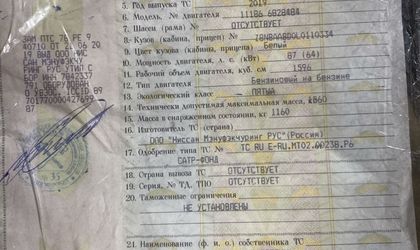 5. Год выпуска ТС 2019
6. Модель, № двигателя 11186 6828484
7. Шасси (рама) № ОТСУТСТВУЕТ
8. Кузов (кабина, прицеп) № Z8NBAABD0L0110334
9. Цвет кузова (кабины, прицепа) Белый
10. Мощность двигателя, л. с. (кВт) 87 (64)
11. Рабочий объем двигателя, куб. см 1596
12. Тип двигателя Бензиновый на Бензине
13. Экологический класс ПЯТЫЙ
14. Технически допустимая максимальная масса, 1560
15. Масса в снаряженном состоянии, кг 1160
16. Изготовитель ТС (страна)
ООО "Ниссан Мэнуфэкчуринг РУС"(Россия)
17. Одобрение типа ТС № ТС RU E-RU.MT02.00238.P6
САТР-ФОНД
18. Страна вывоза ТС ОТСУТСТВУЕТ
19. Серия, № ТД, ТПО ОТСУТСТВУЕТ
20. Таможенные ограничения
НЕ УСТАНОВЛЕНЫ
21. Наименование (ф. и. о.) собственника ТС
ЗАМ ПТС 78 РЕ 9
40710 ОТ 21 06 20
19 ВЫД ООО НИС
САН МЭНУФЭКЧУ
РИНГ РУС УТИЛ С
БОР ИНН 7842337